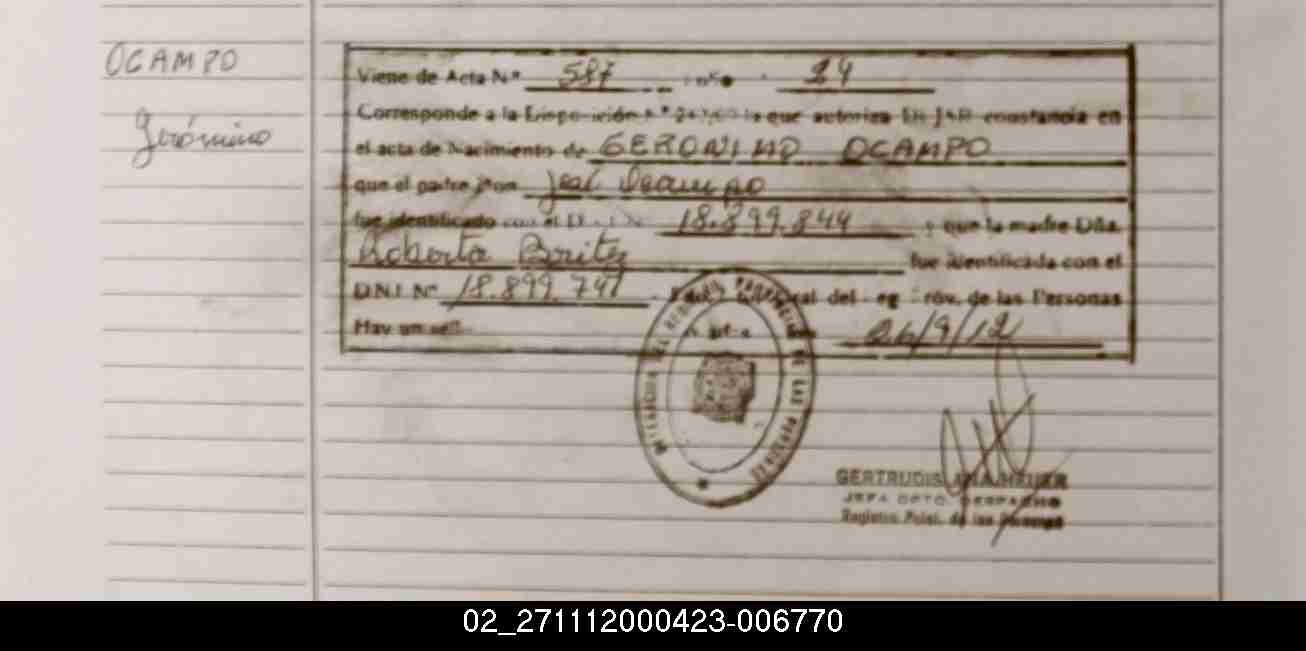 OCAMPO
Jerónimo
Viene de Acta Nº 587 24
Corresponde a la Disposición Nº que autoriza DEJAR constancia en
el acta de Nacimiento de GERONIMO OCAMPO
que el padre Don José Ocampo
fue identificado con el D.N.I. Nº 18.899.844 y que la madre Dña.
Roberta Britez fue identificada con el
D.N.I. Nº 18.899.741 del Reg. Prov. de las Personas
Hay un sello 24/9/12
DE LAS PERSONAS
GERTRUDIS
JEFA DPTO. DESPACHO
Registro Pcial. de las Personas
02_271112000423-006770